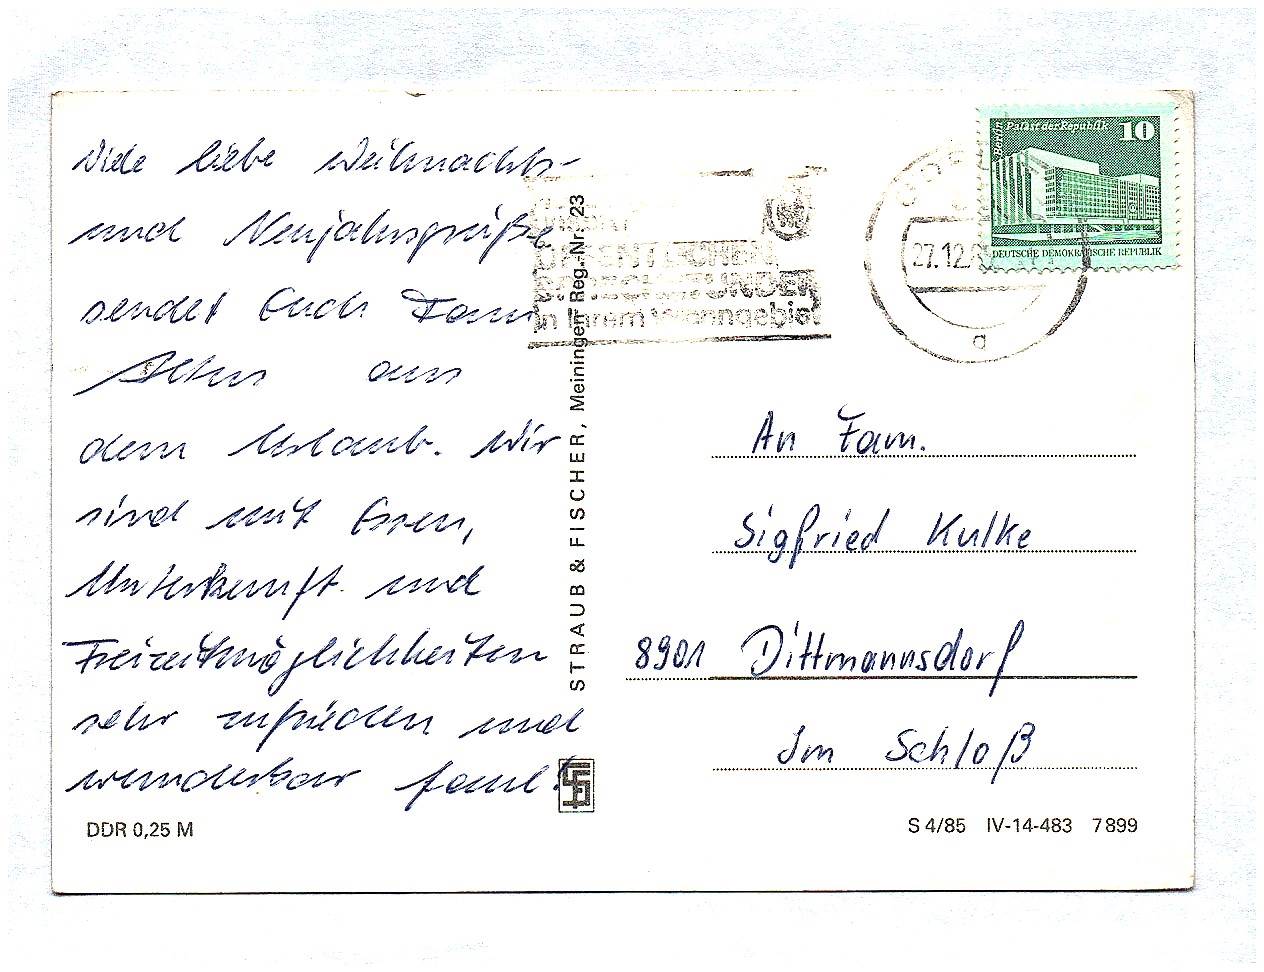 Viele liebe Weihnachts-
und Neujahrsgrüße
sendet Euch Fam.
aus
dem Urlaub. Wir
sind mit Essen,
Unterkunft und
Freizeitmöglichkeiten
sehr zufrieden und
wunderbar faul!
DDR 0,25 M
STRAUB & FISCHER, Meiningen Reg.-Nr. 23
ÖFFENTLICHEN
SPRECHSTUNDEN
in Ihrem Wohngebiet
27.12.
a
Berlin Palast der Republik 10
DEUTSCHE DEMOKRATISCHE REPUBLIK
An Fam.
Sigfried Kulke
8901 Dittmannsdorf
Im Schloß
S 4/85 IV-14-483 7899